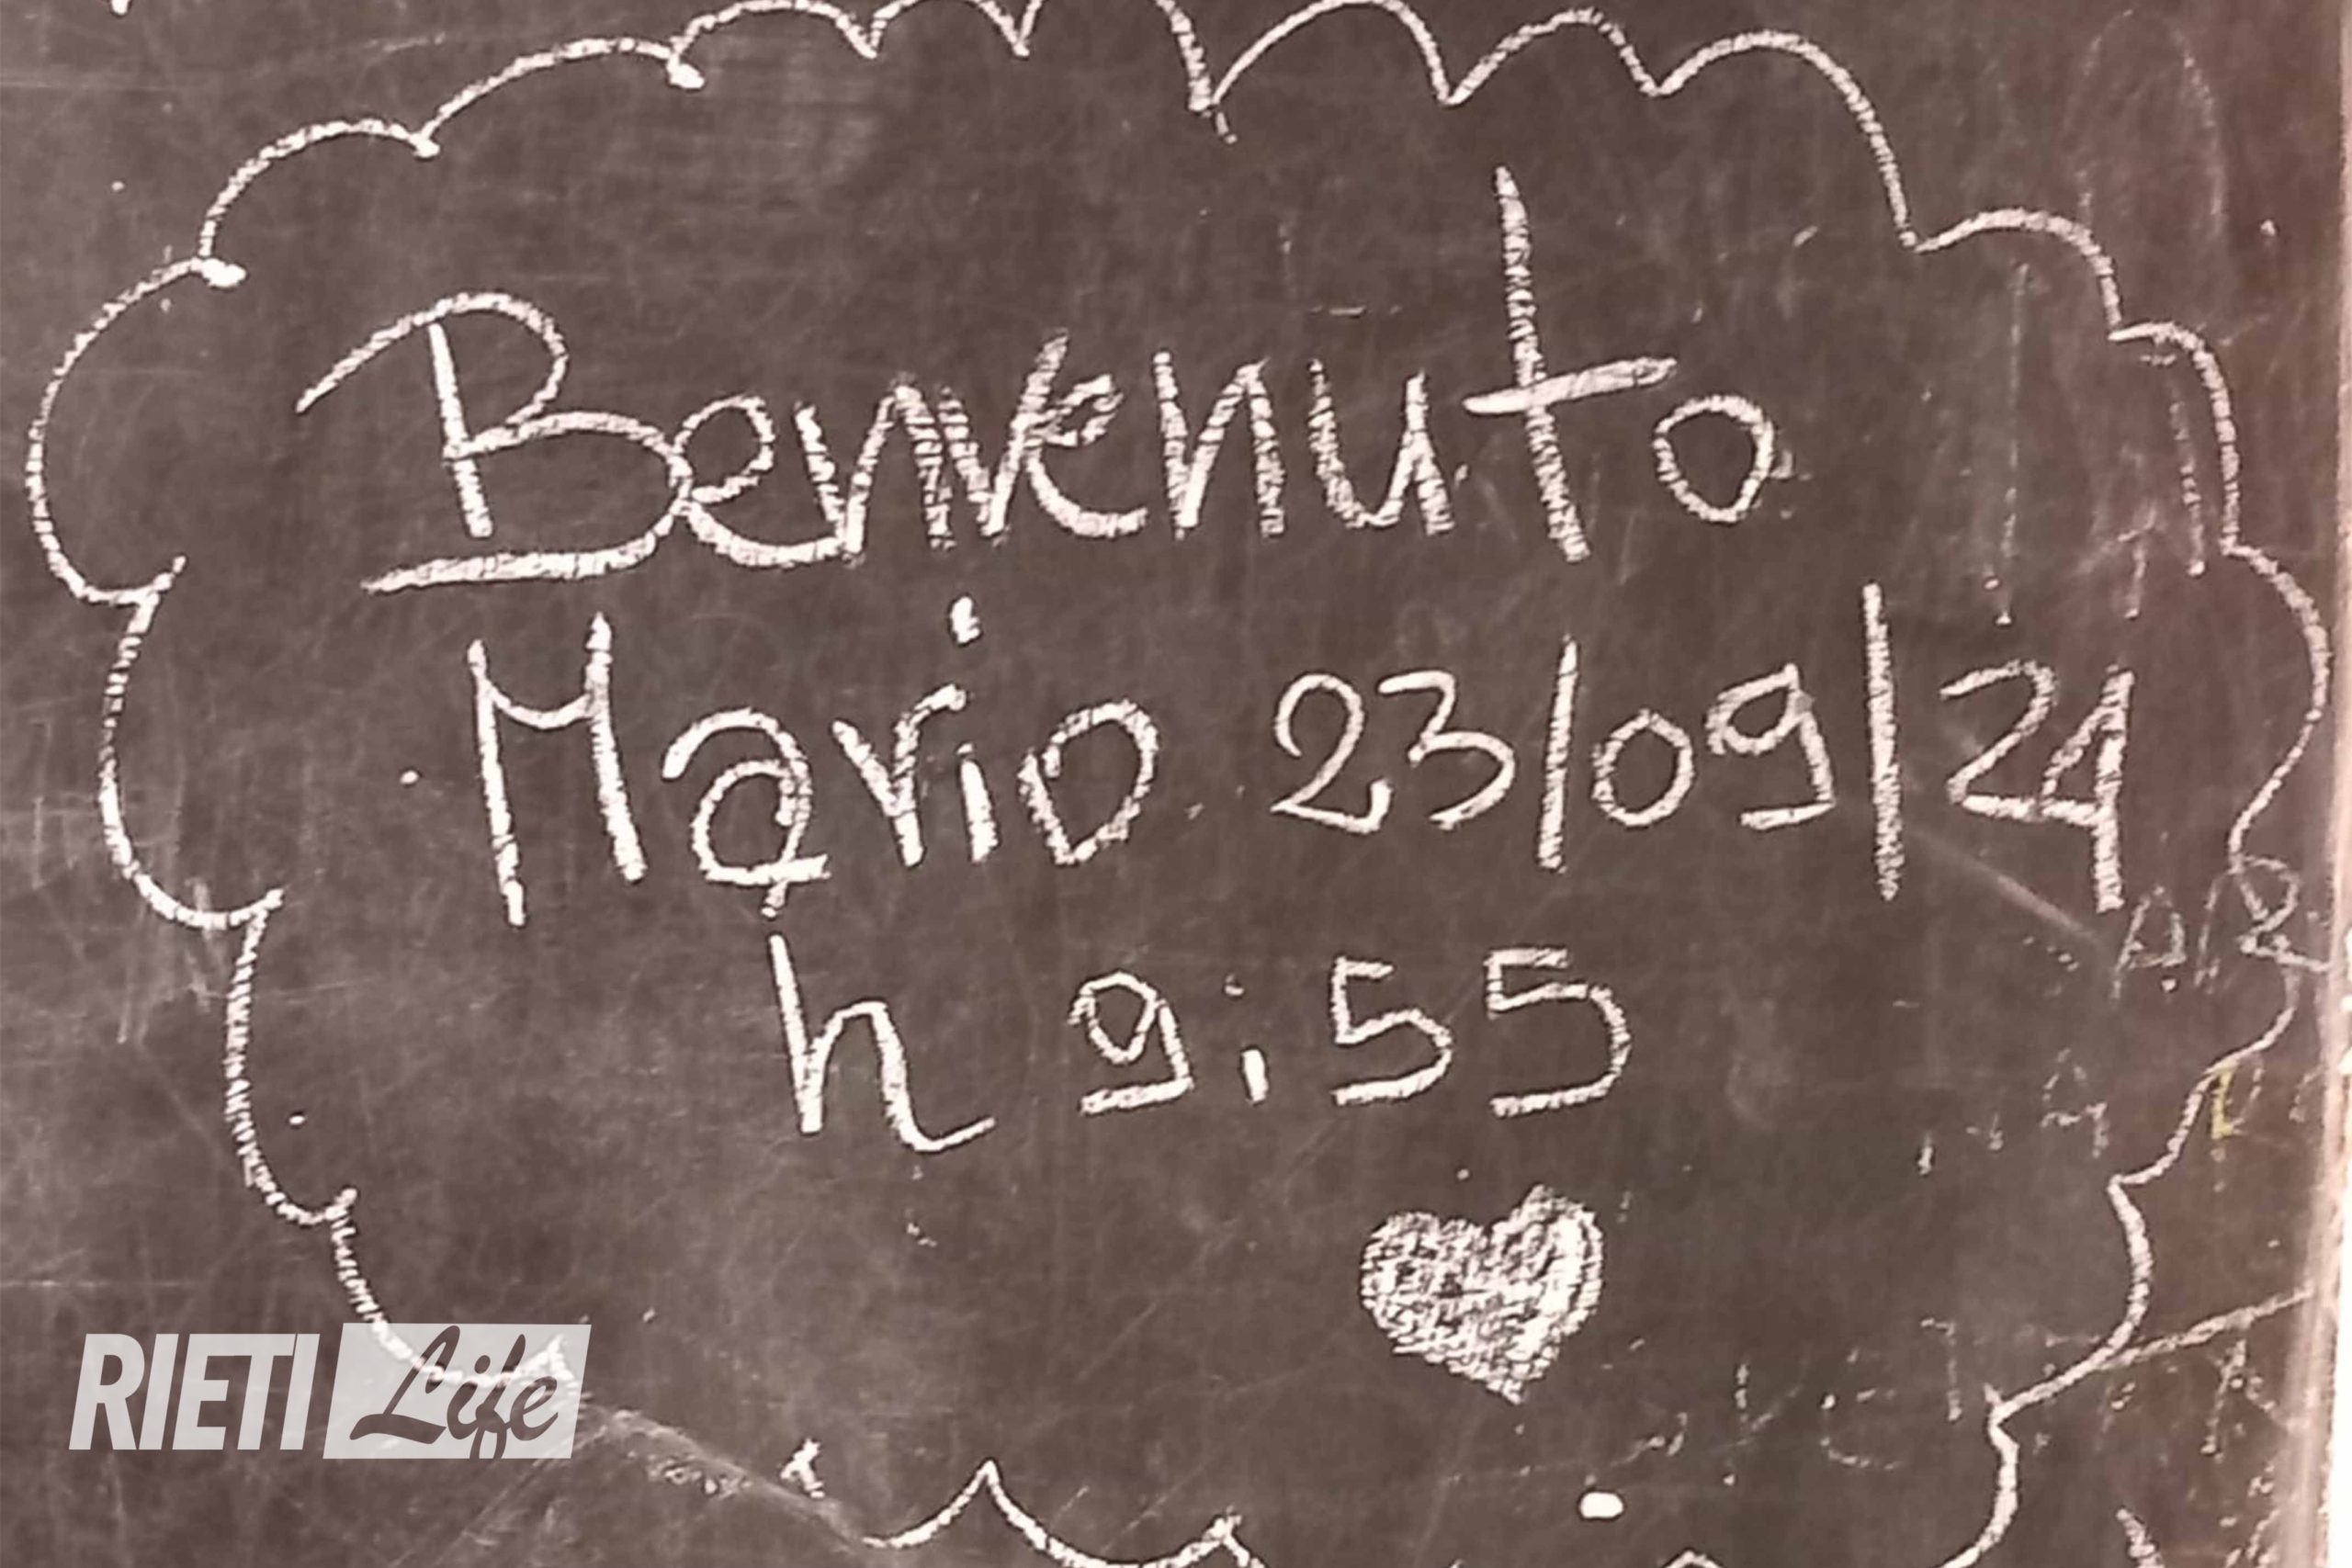 Benvenuto
Mario 23/09/24
h 9:55
RIETI Life